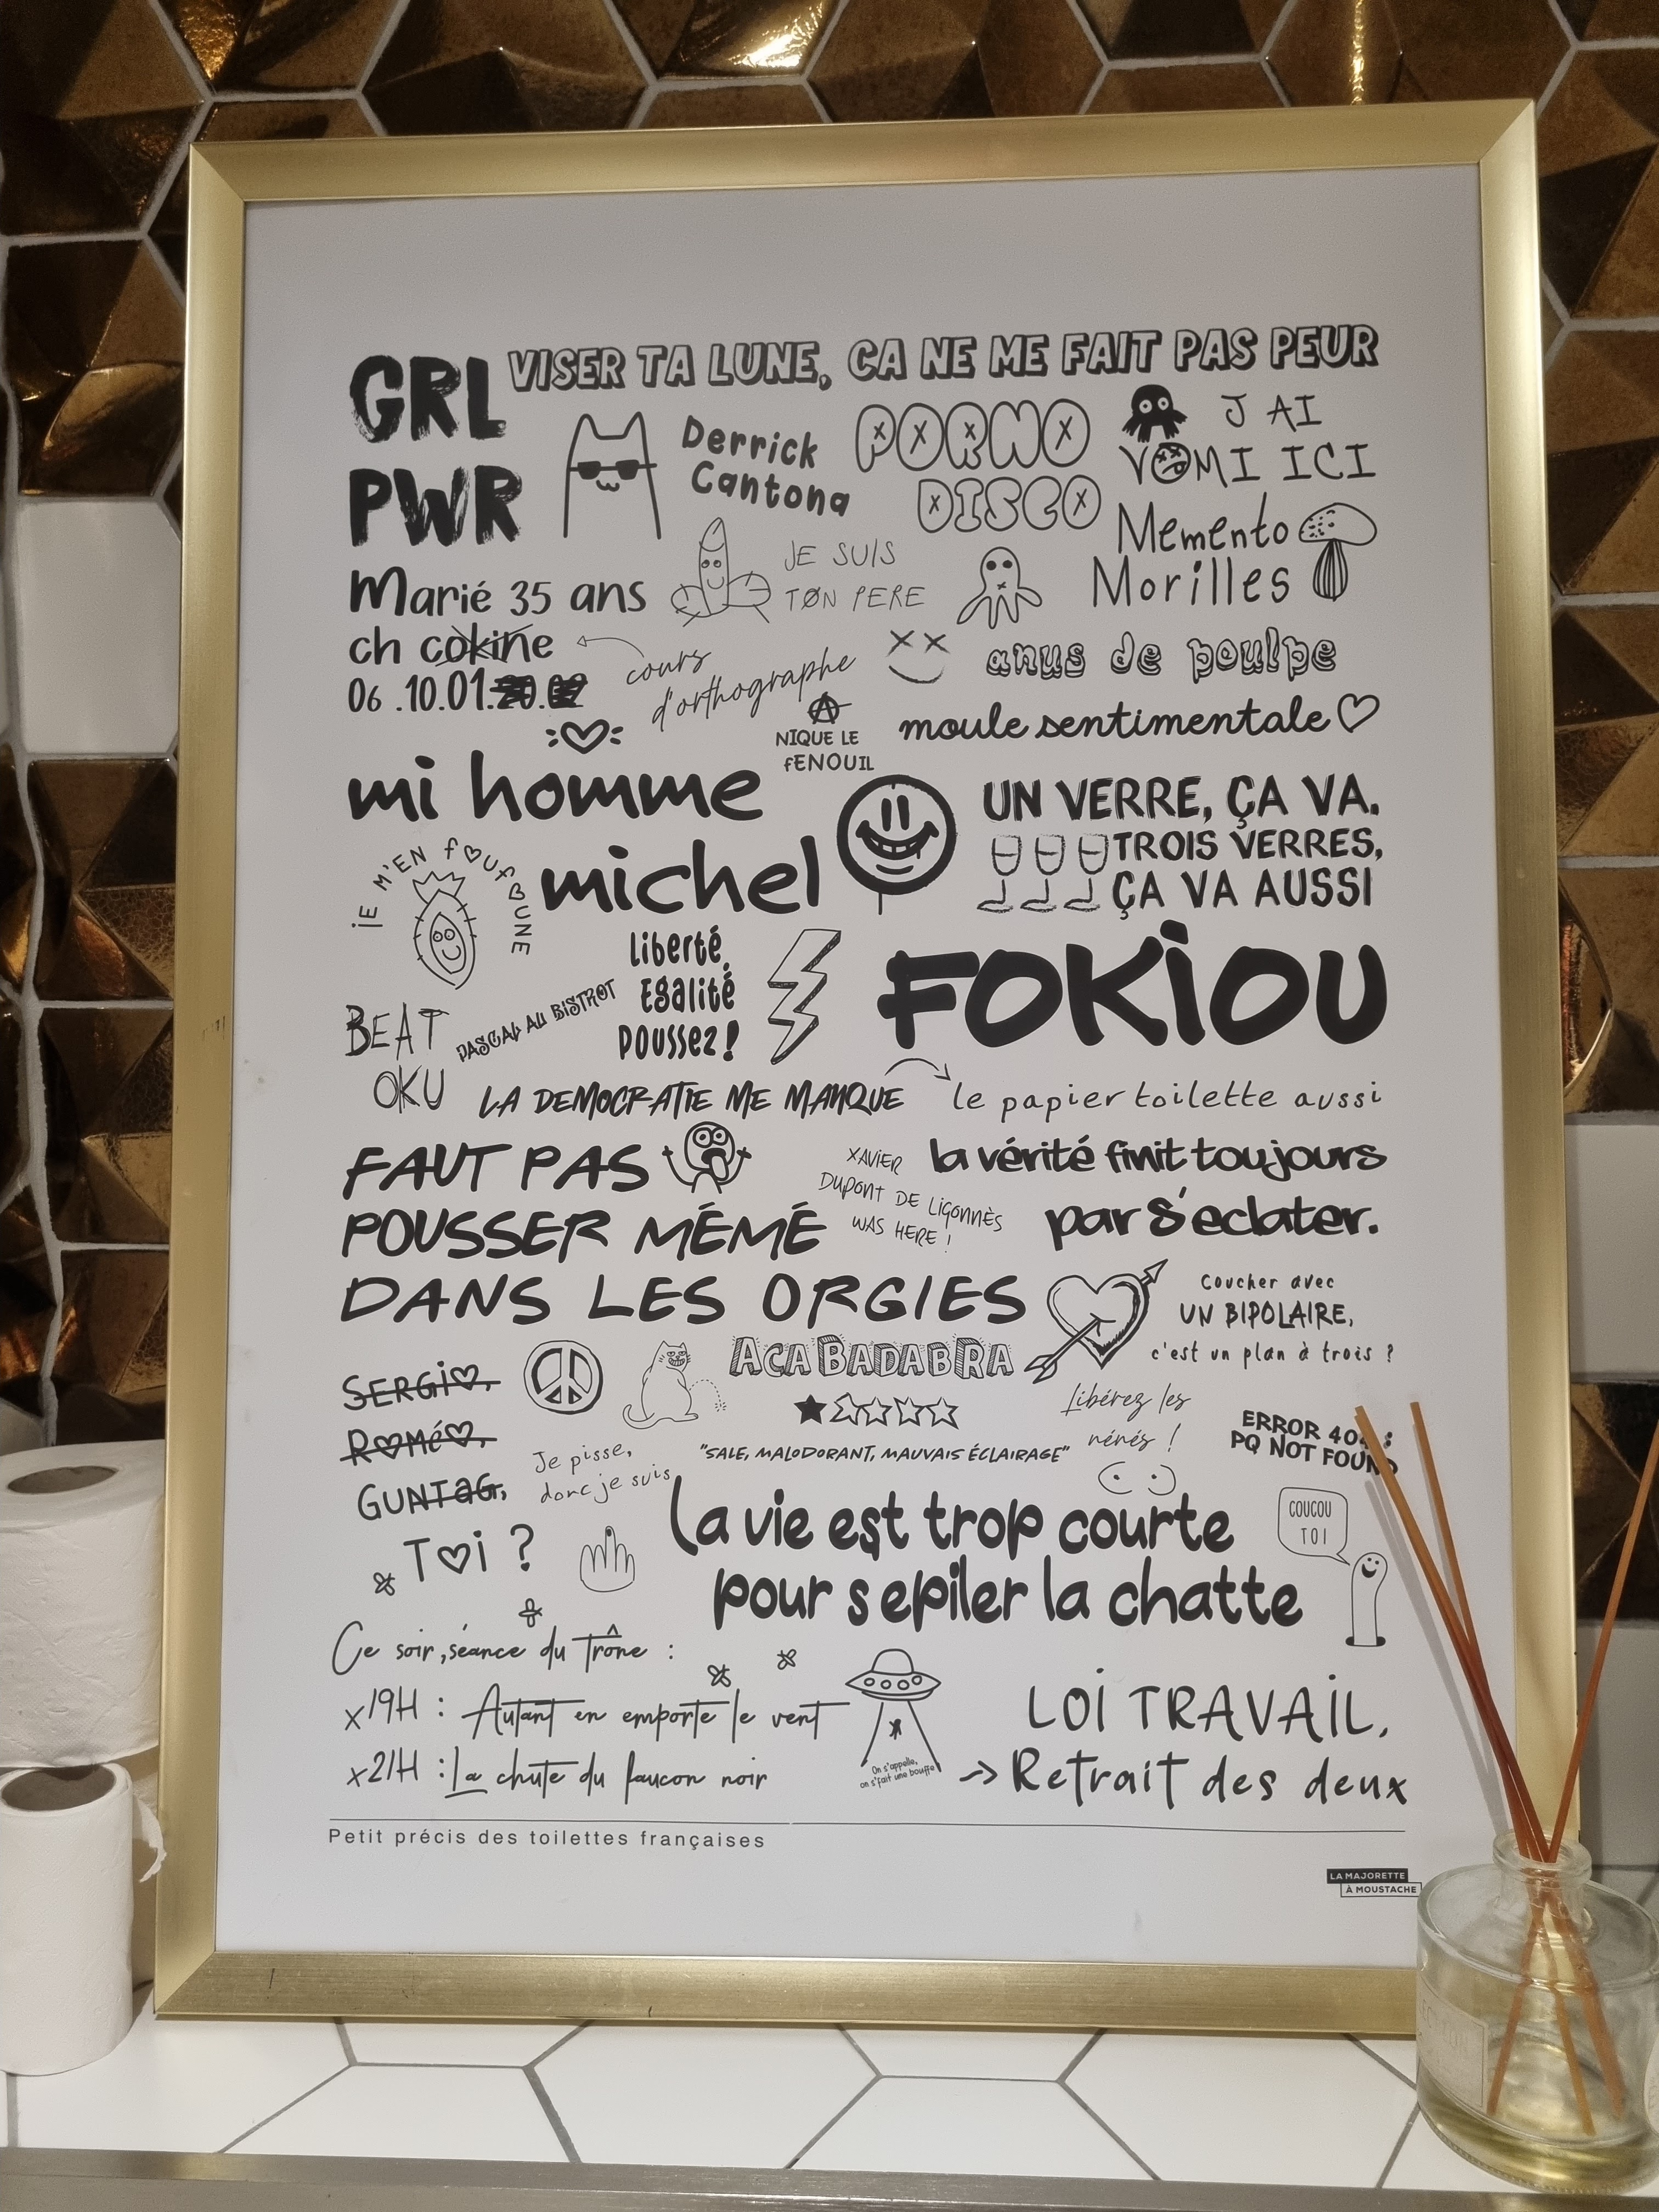 GRL
PWR
VISER TA LUNE, CA NE ME FAIT PAS PEUR
Derrick
Cantona
PORNO
DISCO
J AI
VOMI ICI
Memento
Morilles
JE SUIS
TØN PERE
Marié 35 ans
ch cokine
06 .10.01.
cours
d'orthographe
anus de poulpe
NIQUE LE
fENOUIL
moule sentimentale
mi homme
michel
UN VERRE, ÇA VA.
TROIS VERRES,
ÇA VA AUSSI
JE M'EN FOUFOUNE
liberté,
Egalité
poussez!
FOKIOU
BEAT
OKU
PASCAL AU BISTROT
LA DEMOCRATIE ME MANQUE
le papier toilette aussi
FAUT PAS
POUSSER MÉMÉ
DANS LES ORGIES
XAVIER
DUPONT DE LIGONNÈS
WAS HERE !
la vérité finit toujours
par s'eclater.
Coucher avec
UN BIPOLAIRE,
c'est un plan à trois ?
ACABADABRA
"SALE, MALODORANT, MAUVAIS ÉCLAIRAGE"
SERGIO,
ROMÉO,
GUNTAG,
TOI ?
Je pisse,
donc je suis
Libérez les
nénés !
ERROR 404 :
PQ NOT FOUND
COUCOU
TOI
la vie est trop courte
pour s epiler la chatte
Ce soir, séance du Trône :
x19H : Autant en emporte le vent
x21H : La chute du faucon noir
On s'appelle,
on s'fait une bouffe
LOI TRAVAIL,
-> Retrait des deux
Petit précis des toilettes françaises
LA MAJORETTE
À MOUSTACHE